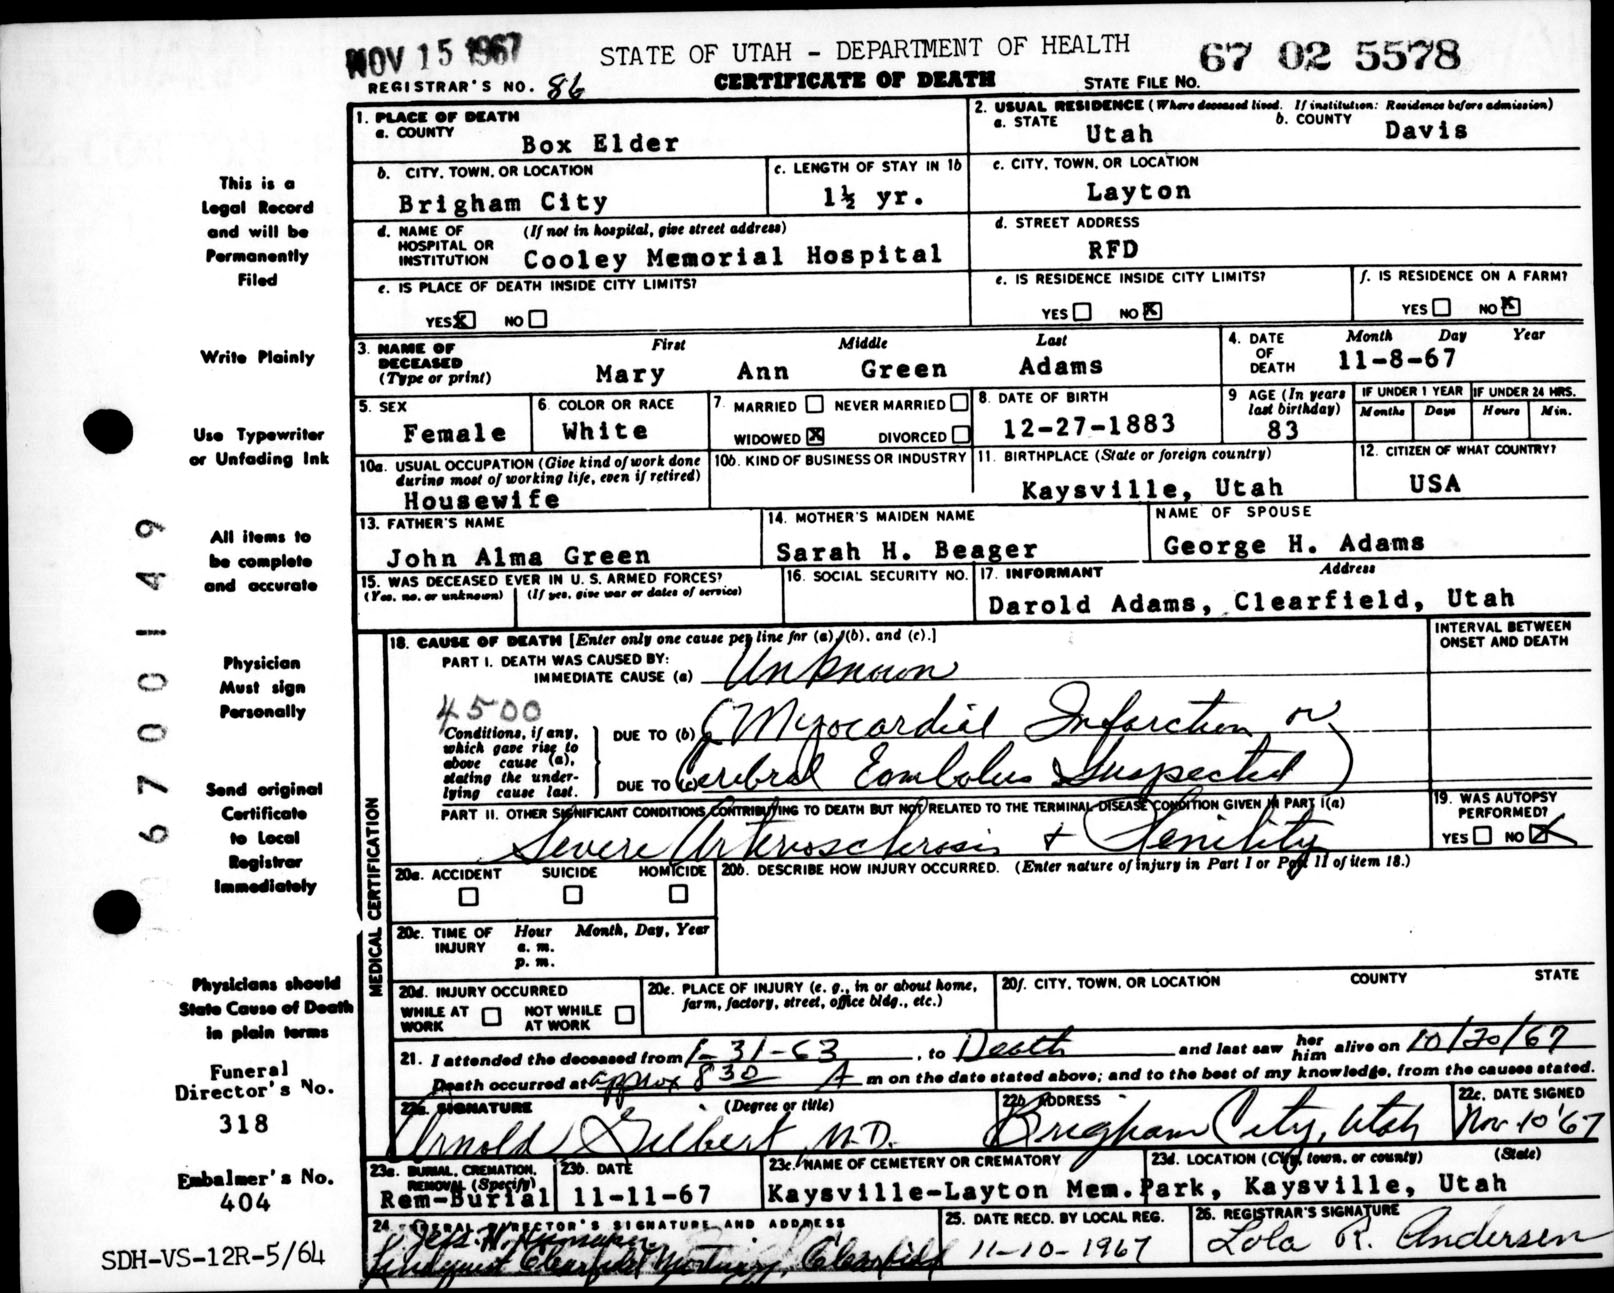 NOV 15 1967
STATE OF UTAH - DEPARTMENT OF HEALTH
67 02 5578
REGISTRAR'S NO. 86
CERTIFICATE OF DEATH
STATE FILE NO.
1. PLACE OF DEATH
a. COUNTY
Box Elder
2. USUAL RESIDENCE (Where deceased lived. If institution: Residence before admission)
a. STATE Utah
b. COUNTY Davis
b. CITY, TOWN, OR LOCATION
Brigham City
c. LENGTH OF STAY IN 1b
1½ yr.
c. CITY, TOWN, OR LOCATION
Layton
d. NAME OF HOSPITAL OR INSTITUTION
(If not in hospital, give street address)
Cooley Memorial Hospital
d. STREET ADDRESS
RFD
e. IS PLACE OF DEATH INSIDE CITY LIMITS?
YES X NO
e. IS RESIDENCE INSIDE CITY LIMITS?
YES NO X
f. IS RESIDENCE ON A FARM?
YES NO X
3. NAME OF DECEASED
(Type or print)
First Middle Last
Mary Ann Green Adams
4. DATE OF DEATH
Month Day Year
11-8-67
5. SEX
Female
6. COLOR OR RACE
White
7. MARRIED NEVER MARRIED
WIDOWED X DIVORCED
8. DATE OF BIRTH
12-27-1883
9 AGE (In years last birthday)
83
IF UNDER 1 YEAR
Months Days
IF UNDER 24 HRS.
Hours Min.
10a. USUAL OCCUPATION (Give kind of work done during most of working life, even if retired)
Housewife
10b. KIND OF BUSINESS OR INDUSTRY
11. BIRTHPLACE (State or foreign country)
Kaysville, Utah
12. CITIZEN OF WHAT COUNTRY?
USA
13. FATHER'S NAME
John Alma Green
14. MOTHER'S MAIDEN NAME
Sarah H. Beager
NAME OF SPOUSE
George H. Adams
15. WAS DECEASED EVER IN U. S. ARMED FORCES?
(Yes, no, or unknown) (If yes, give war or dates of service)
16. SOCIAL SECURITY NO.
17. INFORMANT Address
Darold Adams, Clearfield, Utah
MEDICAL CERTIFICATION
18. CAUSE OF DEATH [Enter only one cause per line for (a), (b), and (c).]
INTERVAL BETWEEN ONSET AND DEATH
PART I. DEATH WAS CAUSED BY:
IMMEDIATE CAUSE (a) Unknown
4500
Conditions, if any, which gave rise to above cause (a), stating the underlying cause last.
DUE TO (b) (Myocardial Infarction or
DUE TO (c) Cerebral Eombolus Suspected)
PART II. OTHER SIGNIFICANT CONDITIONS CONTRIBUTING TO DEATH BUT NOT RELATED TO THE TERMINAL DISEASE CONDITION GIVEN IN PART I(a)
Severe Arteriosclerosis + Senility
19. WAS AUTOPSY PERFORMED?
YES NO X
20a. ACCIDENT SUICIDE HOMICIDE
20b. DESCRIBE HOW INJURY OCCURRED. (Enter nature of injury in Part I or Part II of item 18.)
20c. TIME OF INJURY
Hour Month, Day, Year
a. m.
p. m.
20d. INJURY OCCURRED
WHILE AT WORK NOT WHILE AT WORK
20e. PLACE OF INJURY (e. g., in or about home, farm, factory, street, office bldg., etc.)
20f. CITY, TOWN, OR LOCATION COUNTY STATE
21. I attended the deceased from 1-31-63, to Death and last saw her him alive on 10/30/67
Death occurred at approx 830 A m on the date stated above; and to the best of my knowledge, from the causes stated.
22a. SIGNATURE (Degree or title)
Arnold Gilbert M.D.
22b. ADDRESS
Brigham City, Utah
22c. DATE SIGNED
Nov 10 '67
23a. BURIAL, CREMATION, REMOVAL (Specify)
Rem-Burial
23b. DATE
11-11-67
23c. NAME OF CEMETERY OR CREMATORY
Kaysville-Layton Mem. Park,
23d. LOCATION (City, town, or county) (State)
Kaysville, Utah
24. FUNERAL DIRECTOR'S SIGNATURE AND ADDRESS
Lindquist Clearfield Mortuary, Clearfield
25. DATE RECD. BY LOCAL REG.
11-10-1967
26. REGISTRAR'S SIGNATURE
Lola R. Andersen
This is a
Legal Record
and will be
Permanently
Filed
Write Plainly
Use Typewriter
or Unfading Ink
All items to
be complete
and accurate
Physician
Must sign
Personally
Send original
Certificate
to Local
Registrar
Immediately
Physicians should
State Cause of Death
in plain terms
Funeral
Director's No.
318
Embalmer's No.
404
SDH-VS-12R-5/64
6700149